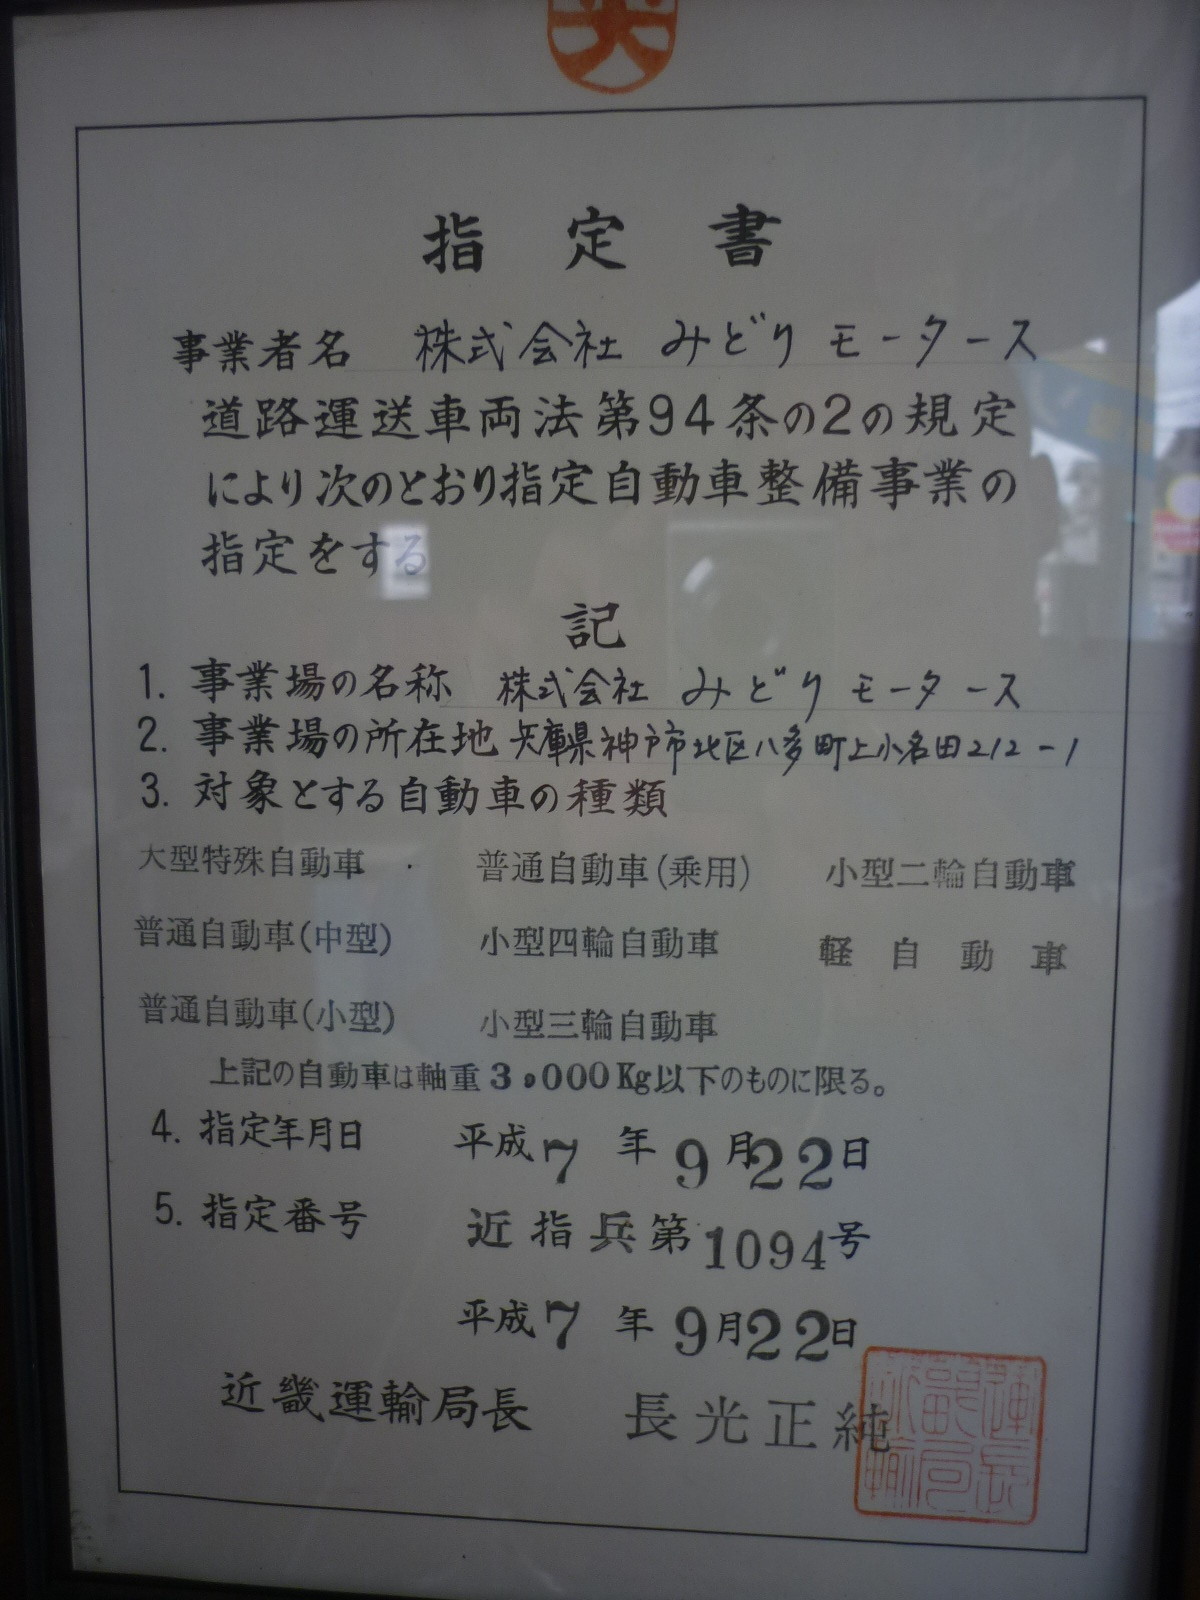 指定書
事業者名 株式会社 みどりモータース
道路運送車両法第94条の2の規定
により次のとおり指定自動車整備事業の
指定をする
記
1. 事業場の名称 株式会社 みどりモータース
2. 事業場の所在地 兵庫県神戸市北区八多町上小名田212-1
3. 対象とする自動車の種類
大型特殊自動車 普通自動車(乗用) 小型二輪自動車
普通自動車(中型) 小型四輪自動車 軽自動車
普通自動車(小型) 小型三輪自動車
上記の自動車は軸重3,000Kg以下のものに限る。
4. 指定年月日 平成7年9月22日
5. 指定番号 近指兵第1094号
平成7年9月22日
近畿運輸局長 長光正純